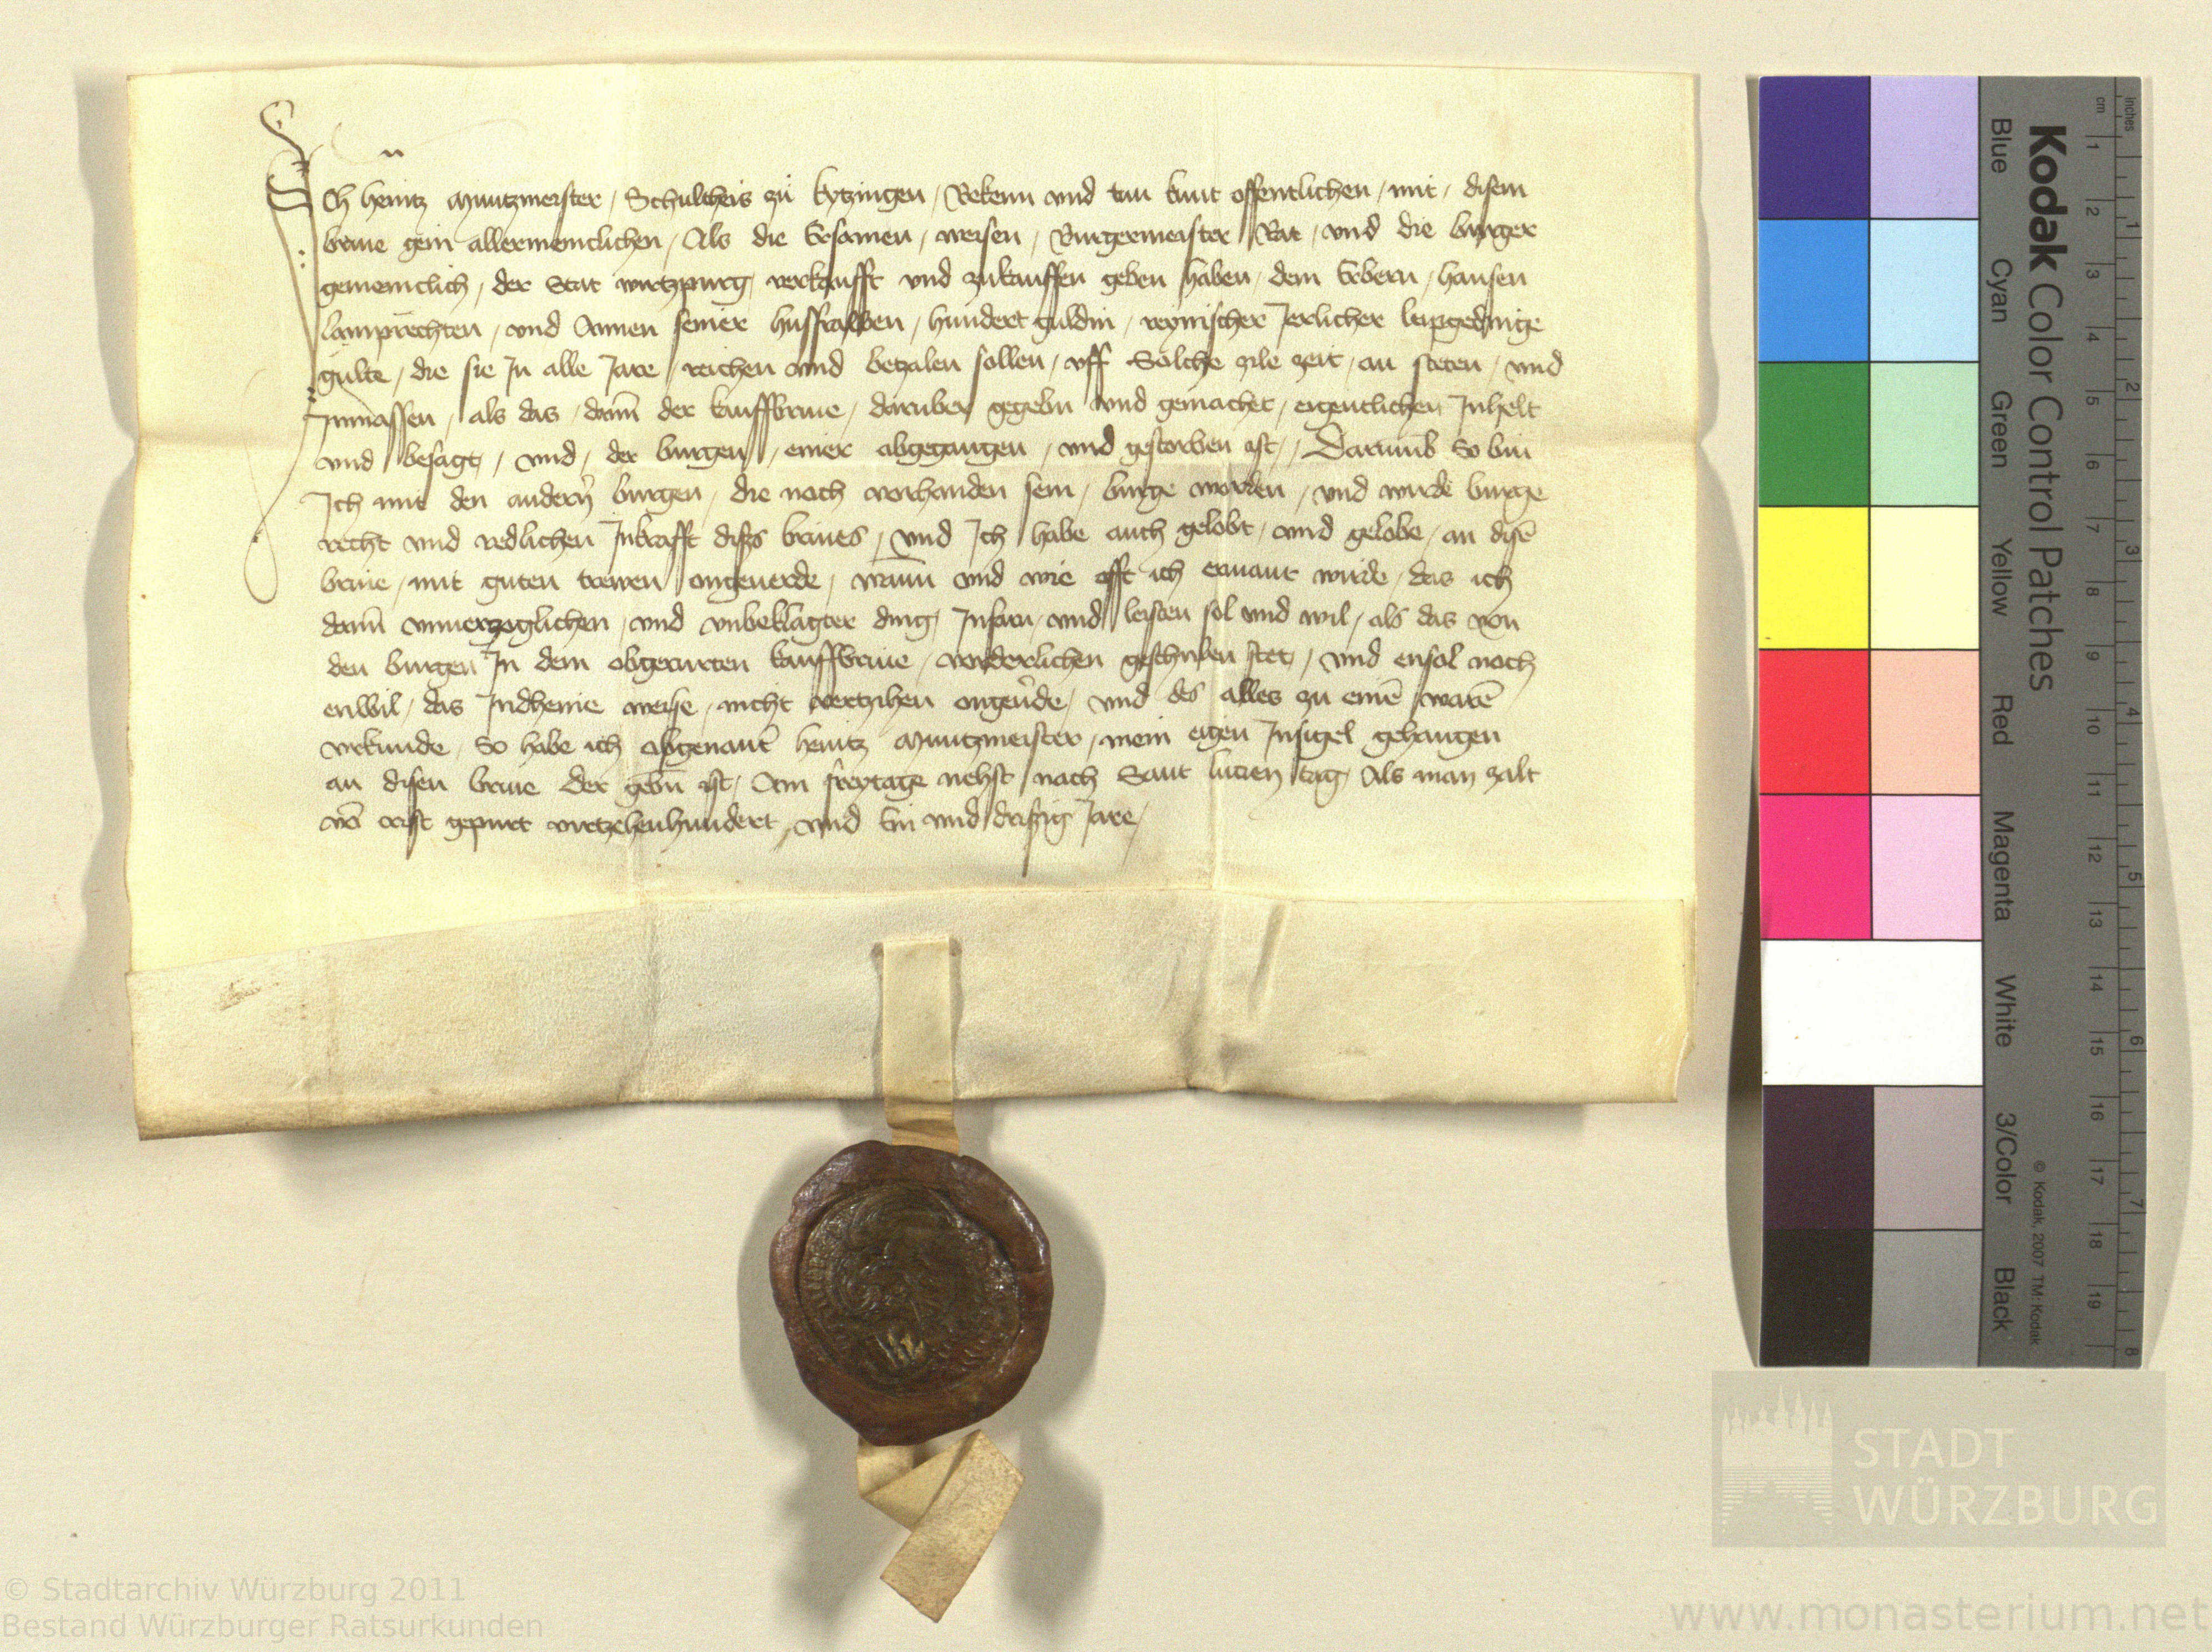 Ich heintz Muntzmeister / Schultheis zu kytzingen / Bekenn vnd tun kunt offentlichen / mit / disem
briue gein allermeniclichen / Als die Ersamen / weisen / Burgermeister / Rat / vnd die burger
gemeinclich / der Stat wirtzpurg / verkaufft vnd zukauffen geben haben / dem Erbern / hansen
lamprechten / vnd Annen seiner husfrawen / hundert guldin / reynischer Jerlicher leipgedinge
gulte / die sie Jn alle Jare / reichen vnd betzalen sollen / vff Solche zile zeit / an steten / vnd
Jnmassen / als das / dann der kauffbriue / daruber gegebn vnd gemachet / eigentlichen Jnhelt
vnd besagt / vnd / der burgen / einer abgegangen / vnd gestorben ist / Darumb So bin
Jch mit den andern burgen / die noch vorhanden sein / burge worden / vnd wurde burge
recht vnd redlichen Jnkrafft diszs briues / vnd Jch habe auch gelobt / vnd gelobe / an disē
briue / mit guten trewen ongeuerde / wann vnd wie offt ich ermant wurde / das ich
dann vnuerzoglichen / vnd vnbeklagter ding / Jnfarn / vnd leisten sol vnd wil / als das von
den burgen Jn dem obgerurten kauffbriue / vorderlichen geschriben stet / vnd ensol noch
enwil / das Jndheine weise / nicht vertzihen ongeu̓de / vnd des alles zu einē warē
vrkunde / So habe ich obgenant heintz Muntzmeister / mein eigen Jnsigel gehangen
an disen briue der gebn ist / Am freytage nehst nach Sant lucien tag / Als man zalt
vō crist gepurt virtzehenhundert / vnd Ein vnd driszig Jare /
Kodak Color Control Patches
Blue Cyan Green Yellow Red Magenta White 3/Color Black
© Kodak, 2007 TM: Kodak
inches 1 2 3 4 5 6 7 8
cm 1 2 3 4 5 6 7 8 9 10 11 12 13 14 15 16 17 18 19
STADT
WÜRZBURG
© Stadtarchiv Würzburg 2011
Bestand Würzburger Ratsurkunden
www.monasterium.net